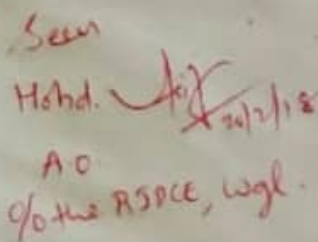 Seen
Mohd.
20/2/18
A O
O/o the RSDCE, Wgl.